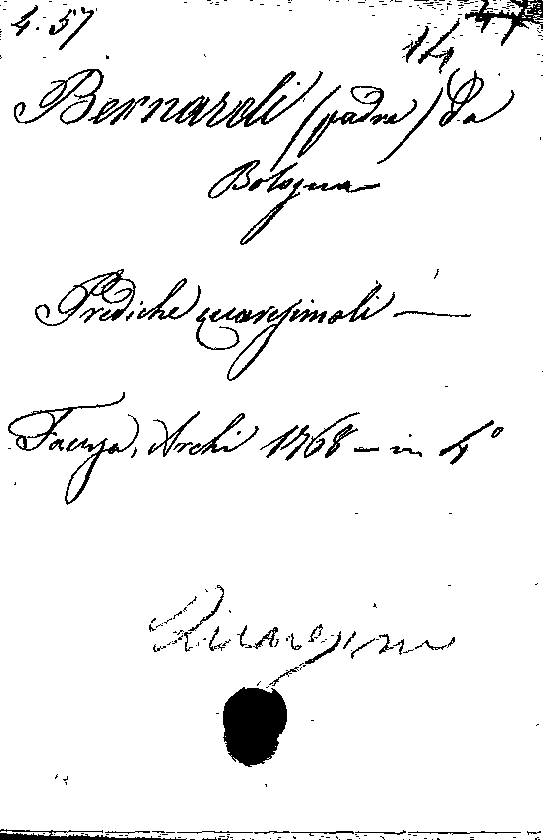 4. 57
14
Bernaroli (padre) Da
Bologna
Prediche quaresimali —
Faenza, Archi 1768 — in 4°